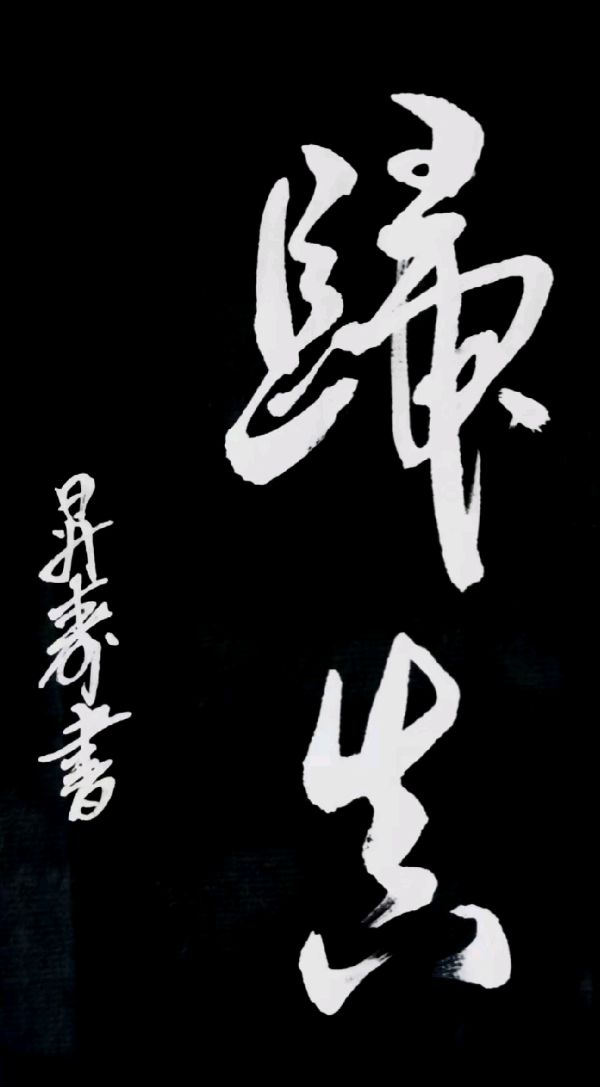 歸真
昇壽書